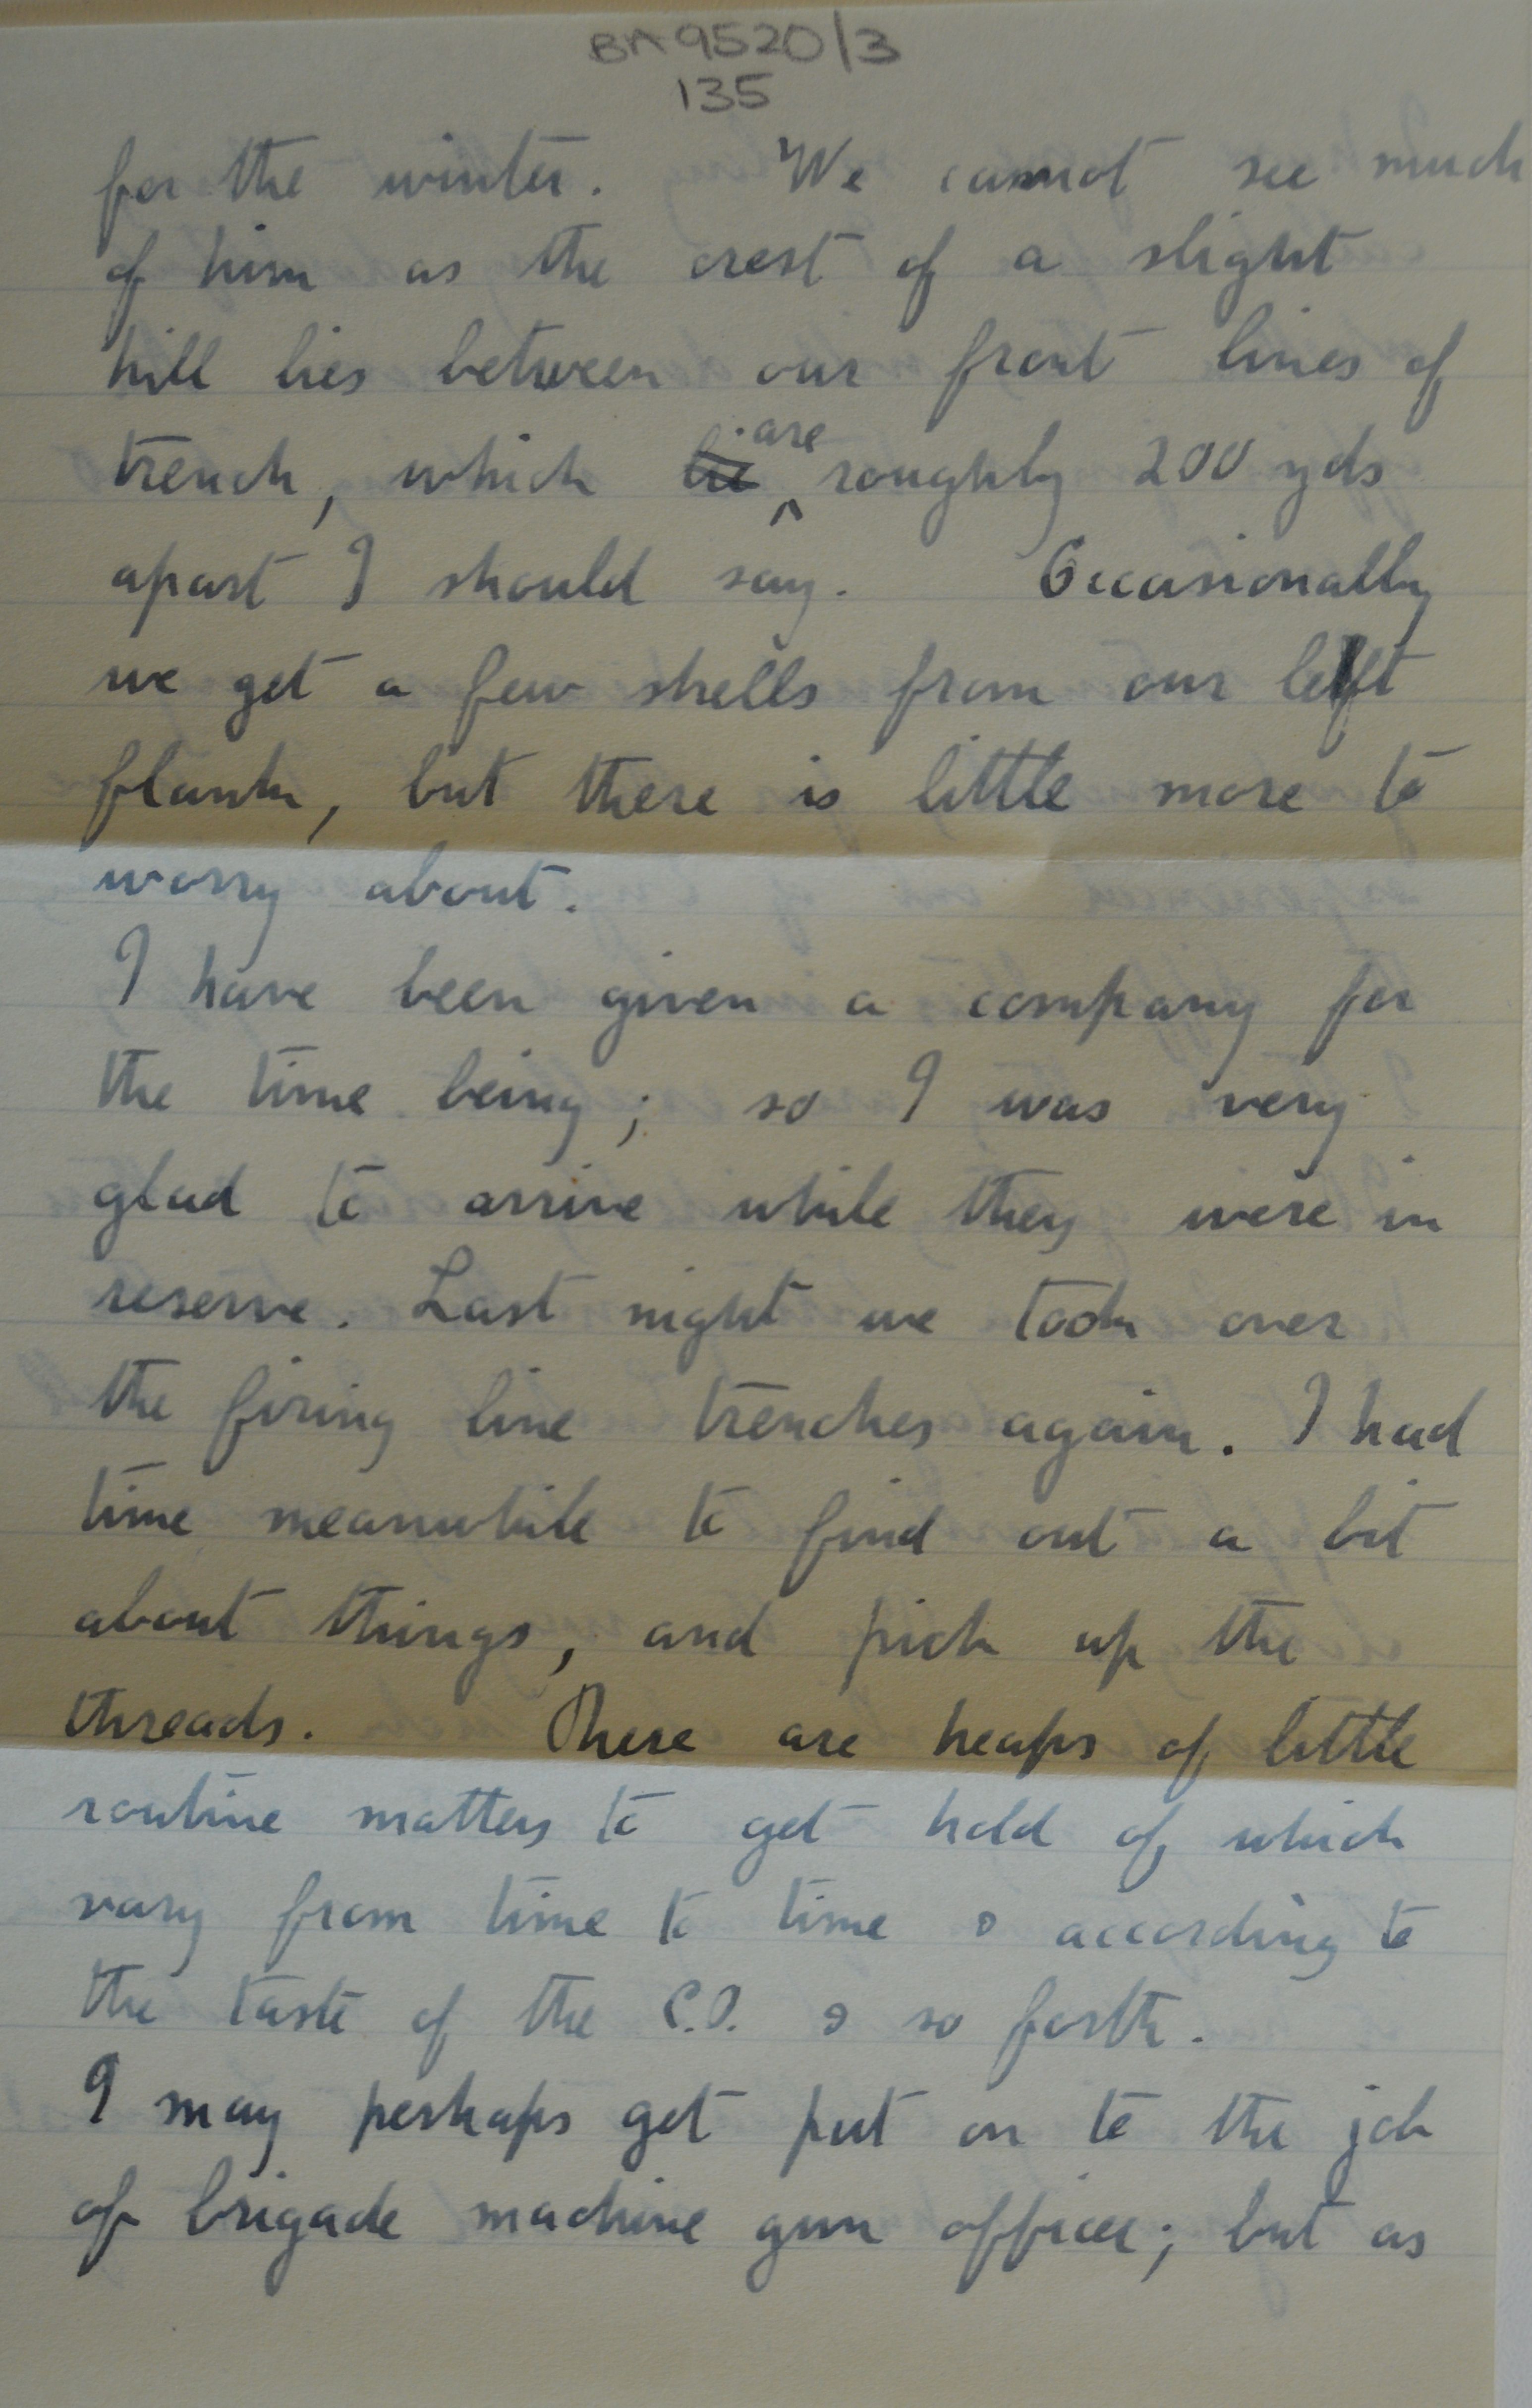 BA9520/3
135
for the winter. We cannot see much
of him as the crest of a slight
hill lies between our front lines of
trench, which lie are roughly 200 yds
apart I should say. Occasionally
we get a few shells from our left
flank, but there is little more to
worry about.
I have been given a company for
the time being; so I was very
glad to arrive while they were in
reserve. Last night we took over
the firing line trenches again. I had
time meanwhile to find out a bit
about things, and pick up the
threads. There are heaps of little
routine matters to get hold of which
vary from time to time & according to
the taste of the C.O. & so forth.
I may perhaps get put on to the job
of brigade machine gun officer; but as